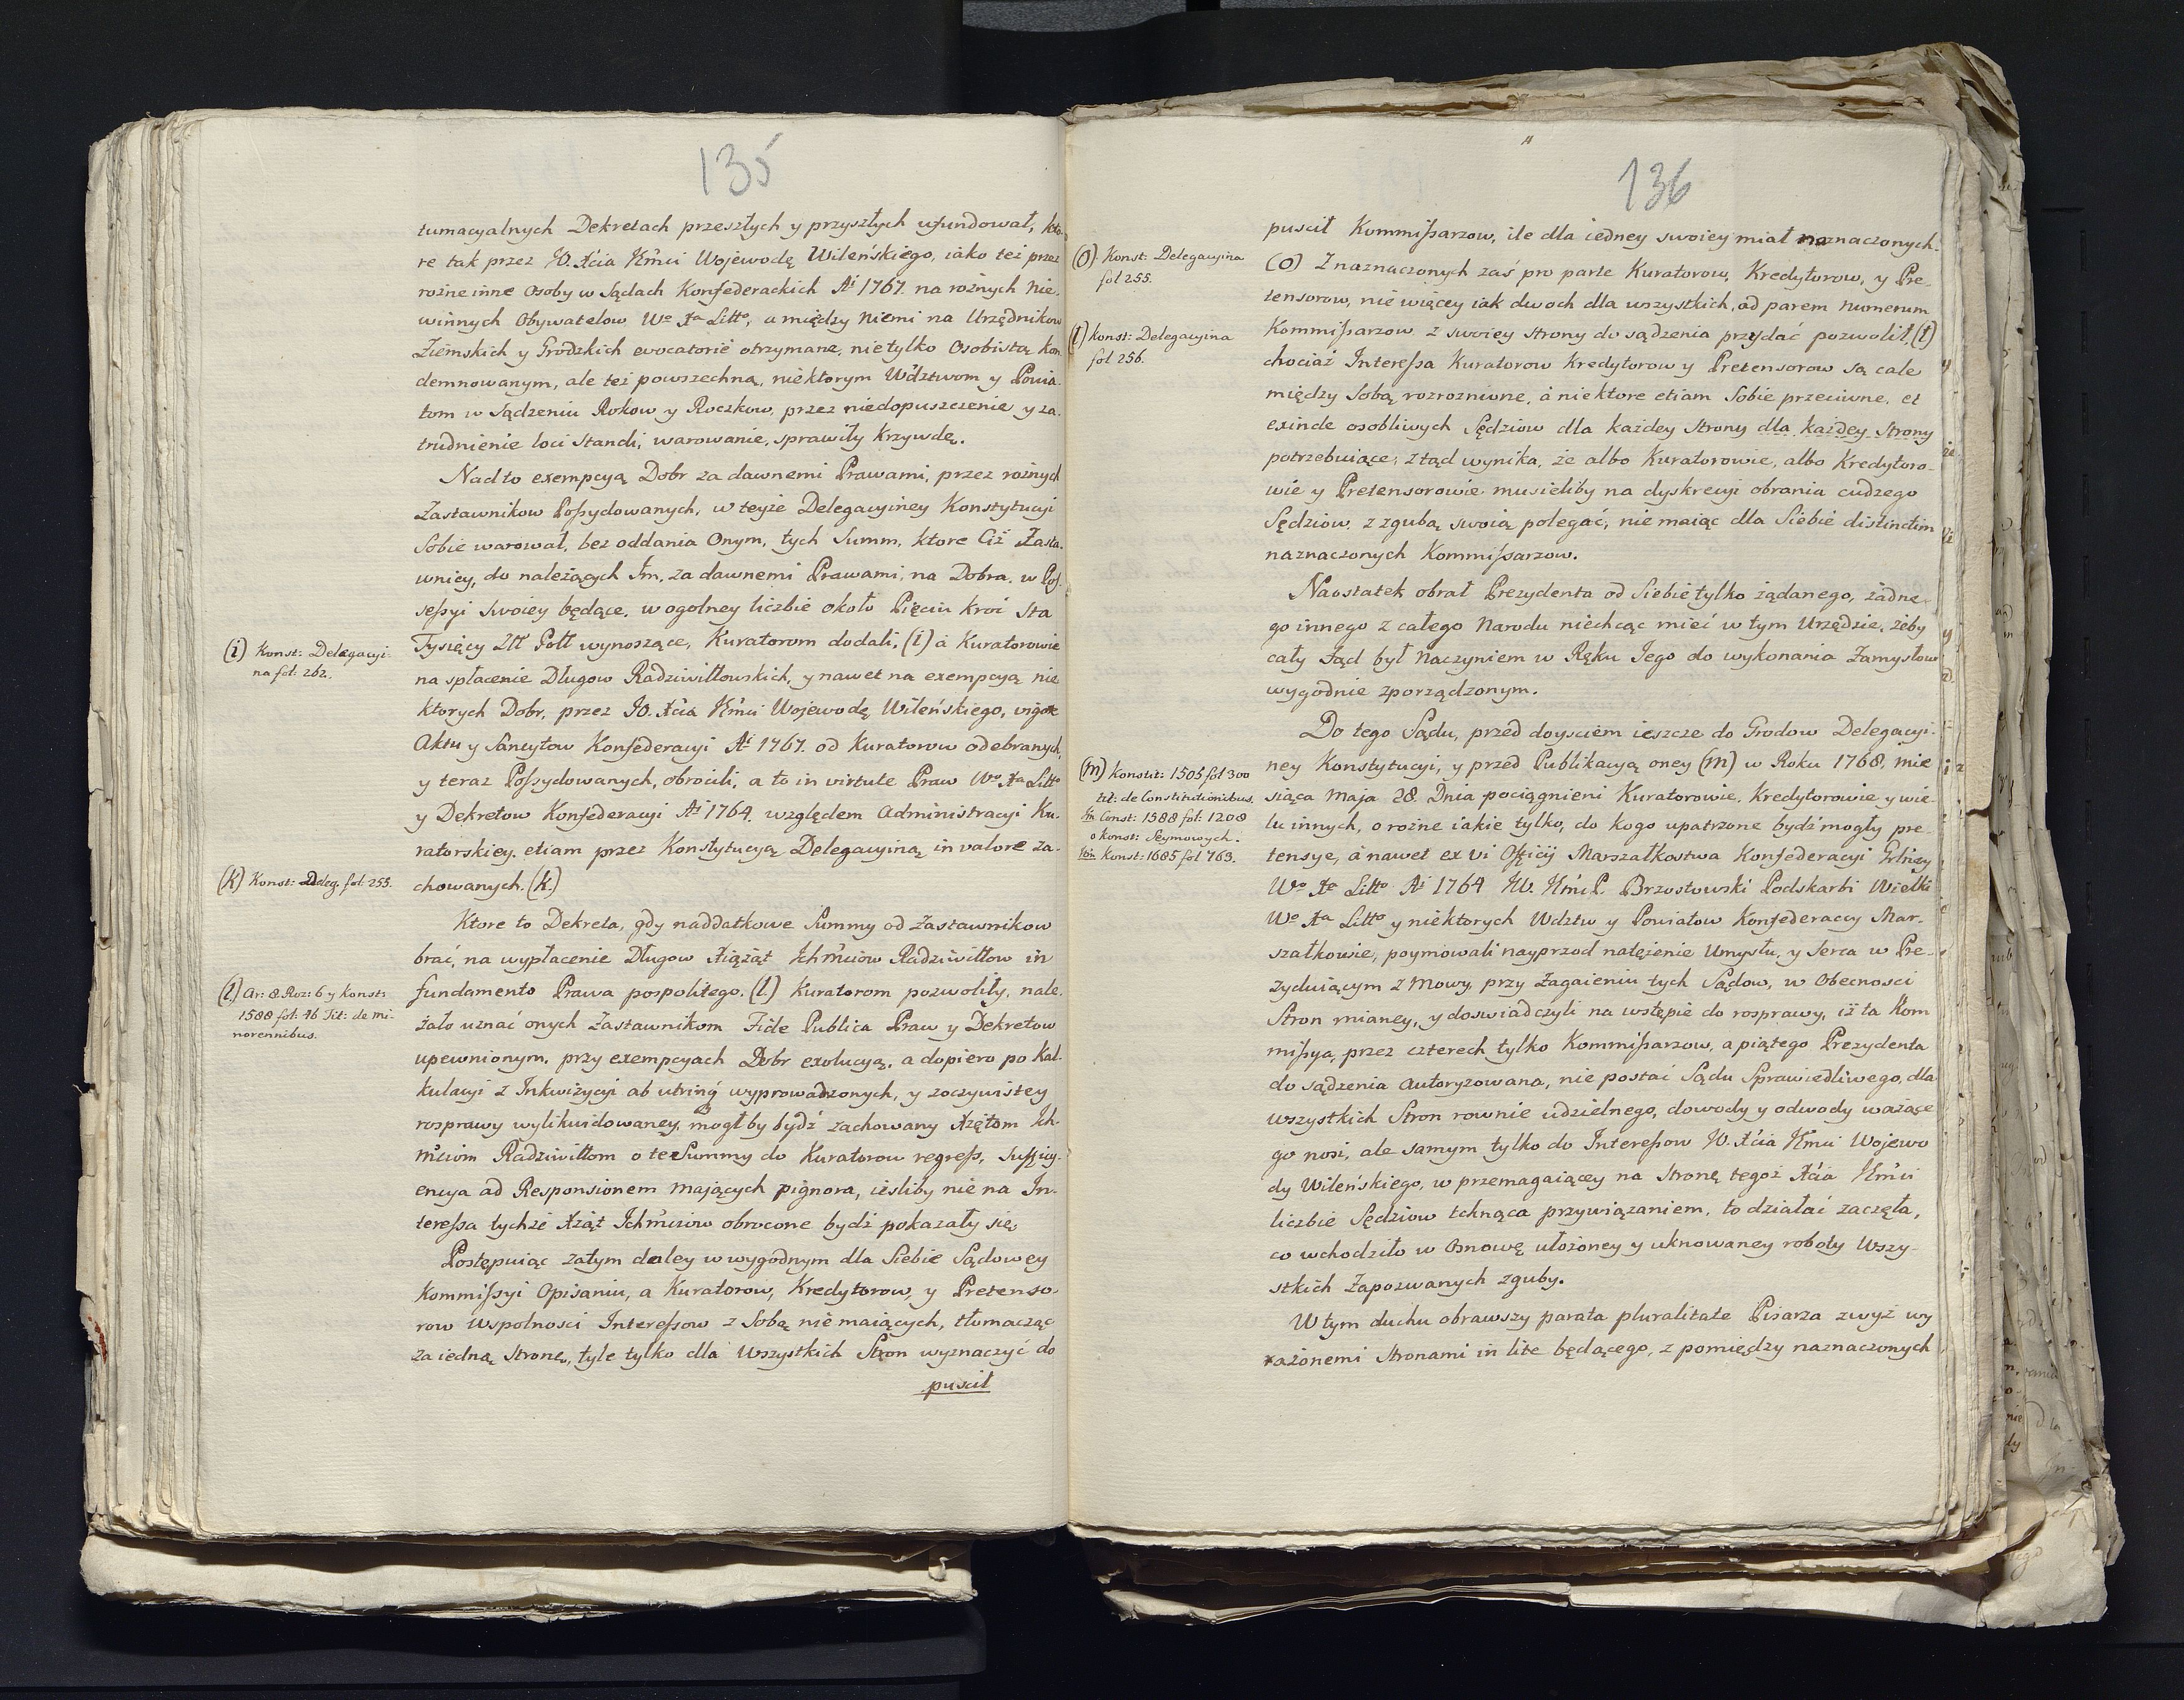 135
tumacyalnych Dekretach przeszłych y przyszłych ufundował, kto-
re tak przez JO. Xcia Jmci Wojewodę Wileńskiego, iako też przez
rożne inne Osoby w Sądach Konfederackich Ai 1767. na rożnych Nie-
winnych Obywatelow Wo Xa Litto, a między Niemi na Urzędnikow
Ziemskich y Grodzkich evocatorié otrzymane, nietylko Osobistą kon
demnowanym, ale też powszechną, niektorym Wdztwom y Powia-
tom w Sądzeniu Rokow y Roczkow, przez niedopuszczenie y za-
trudnienie loci Standi, warowanie, sprawiły Krzywdę.
Nadto exempcyą Dobr za dawnemi Prawami, przez rożnych
Zastawnikow Possydowanych, w teyże Delegacyiney Konstytucyi
Sobie warował, bez oddania Onym, tych Summ, ktore Ciż Zasta-
wnicy, do należących Im, za dawnemi Prawami, na Dobra, w Pos-
sessyi swoiey będące, w ogolney liczbie około Pięciu kroć Sta
(i) Konst: Delegacyi-
na fol: 262.
Tysięcy Złł Poll wynoszące, Kuratorom dodali, (i) á Kuratorowie
na spłacenie Długow Radziwiłłowskich, y nawet na exempcyą nie
ktorych Dobr, przez JO. Xcia Jmci Wojewodę Wileńskiego, vigore
Aktu y Sancytow Konfederacyi Ai 1767. od Kuratorow odebranych,
y teraz Possydowanych, obrocili, a to in virtute Praw Wo Xa Litto
y Dekretow Konfederacyi Ai 1764. względem Administracyi Ku-
ratorskiey, etiam przez Konstytucyą Delegacyiną in valore za-
(k) Konst: Deleg. fol: 255.
chowanych. (k.)
Ktore to Dekreta, gdy naddatkowe Summy od Zastawnikow
brać, na wypłacenie Długow Xiążąt Ichmciow Radziwiłłow in
(l) Ar: 8 Roz: 6 y Konst:
1588 fol: 46 Tit: de Mi-
norennibus.
fundamento Prawa pospolitego, (l.) Kuratorom pozwoliły, nale-
żało uznać onych Zastawnikom Fide Publica Praw y Dekretow
upewnionym, przy exempcyach Dobr exolucyą, a dopiero po Kal-
kulacyi z Inkwizycyi ab utrinq wyprowadzonych, y zoczywistey
rosprawy wylikwidowaney, mogłby bydź zachowany Xzętom Ich-
mciom Radziwiłłom o te Summy do Kuratorow regress, Sufficy-
encya ad Responsionem mających pignora, ieśliby nie na In-
teressa tychże Xżąt Ichmciow obrocone bydź pokazały się.
Postępuiąc zatym daley w wygodnym dla Siebie Sądowey
Kommissyi Opisaniu, a Kuratorow, Kredytorow, y Pretenso-
row wspolnosci Interessow z Sobą nie maiących, tłomacząc
za iedną Stronę, tyle tylko dla Wszystkich Stron wyznaczyć do
puscił
136
puscił Kommissarzow, ile dla iedney swoiey miał naznaczonych.
(O). Konst: Delegacyina
fol 255.
(O) Z naznaczonych zaś pro parte Kuratorow, Kredytorow, y Pre-
tensorow, nie więcey iak dwoch dla wszystkich, ad parem numerum
(t) Konst: Delegacyina
fol 256.
Kommissarzow z swoiey strony do sądzenia przydać pozwolił, (t)
chociaż Interessa Kuratorow Kredytorow y Pretensorow są cale
między Sobą rozroznione, á niektore etiam Sobie przeciwne, et
exinde osobliwych Sędziow dla każdey Strony dla każdey Strony
potrzebuiące; ztąd wynika, że albo Kuratorowie, albo Kredytoro-
wie y Pretensorowie musieliby na dyskrecyi obrania cudzego
Sędziow z zgubą swoią polegać, nie maiąc dla Siebie distinctim
naznaczonych Kommissarzow.
Naostatek obrał Prezydenta od Siebie tylko żądanego, żadne-
go innego z całego Narodu niechcąc mieć w tym Urzędzie, żeby
cały Sąd był Naczyniem w Ręku Jego do wykonania Zamysłow
wygodnie zporządzonym.
Do tego Sądu, przed doysciem ieszcze do Grodow Delegacyi-
(m) Konstit: 1505 fol 300
tit: de Constitutionibus.
Const: 1588 fol: 1208
o konst: Seymowych.
Konst: 1685 fol 763.
ney Konstytucyi, y przed Publikacyą oney (m) w Roku 1768, mie
siąca Maja 28. Dnia pociągnieni Kuratorowie, Kredytorowie y wie-
lu innych, o rożne iakie tylko, do kogo upatrzone bydź mogły pre-
tensye, á nawet ex vi Officij Marszałkostwa Konfederacyi Grlney
Wo Xa Litto Ai 1764 JW. Jmci P. Brzostowski Podskarbi Wielki
Wo Xa Litto y niektorych Wdztw y Powiatow Konfederaccy Mar-
szałkowie, poymowali nayprzod natężenie Umysłu, y Serca w Pre-
zyduiącym z Mowy, przy Zagaieniu tych Sądow, w Obecnosci
Stron mianey, y doswiadczyli na wstępie do rosprawy, iż ta Kom
missya, przez czterech tylko Kommissarzow, a piątego Prezydenta
do sądzenia Autoryzowana, nie postać Sądu Sprawiedliwego, dla
wszystkich Stron rownie udzielnego, dowody y odwody ważące
go nosi, ale samym tylko do Interessow JO. Xcia Jmci Wojewo
dy Wileńskiego, w przemagaiącey na Stronę tegoż Xcia Jmci
liczbie Sędziow tchnąca przywiązaniem, to działać zaczęła,
co wchodziło w Osnowę ułożoney y uknowaney roboty Wszy-
stkich Zapozwanych zguby.
W tym duchu obrawszy parata pluralitate Pisarza zwyż wy
rażonemi Stronami in lite będącego, z pomiędzy naznaczonych